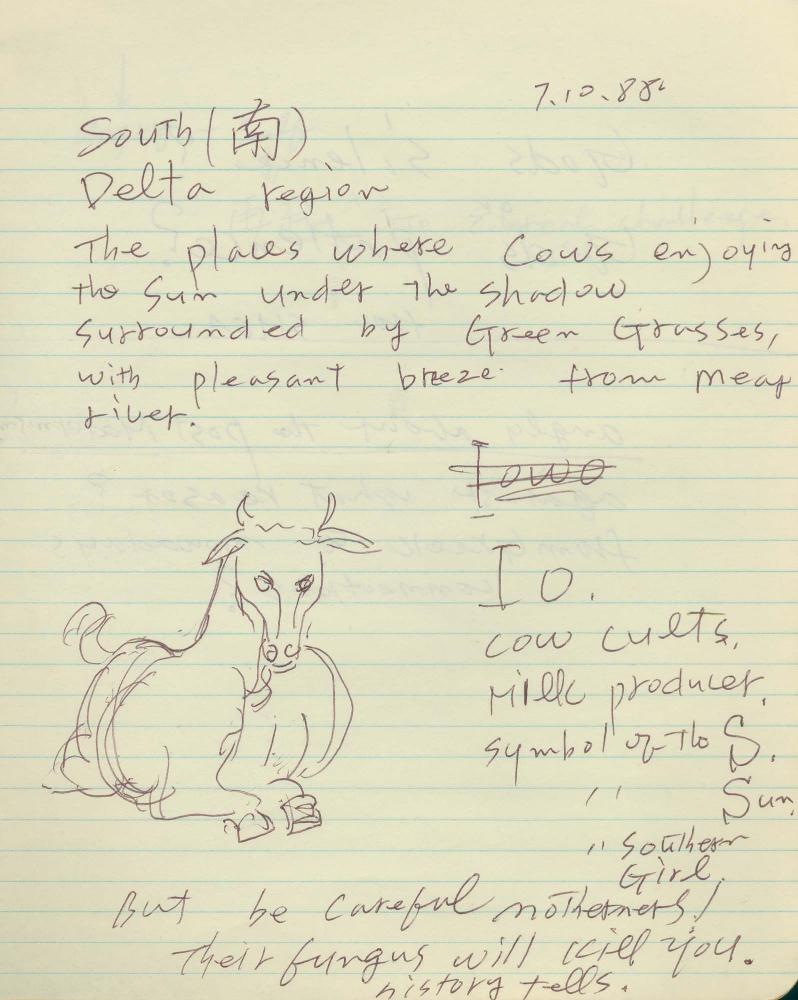 7.10.88
South (南)
Delta region
The places where Cows enjoying
the Sun under the shadow
surrounded by Green Grasses,
with pleasant breeze from mear
river.
Iowo
Io.
cow cults,
Milk producer,
symbol of the S.
〃 Sun,
〃 Southern
Girl,
But be careful nothermers!
Their fungus will kill you.
history tells.